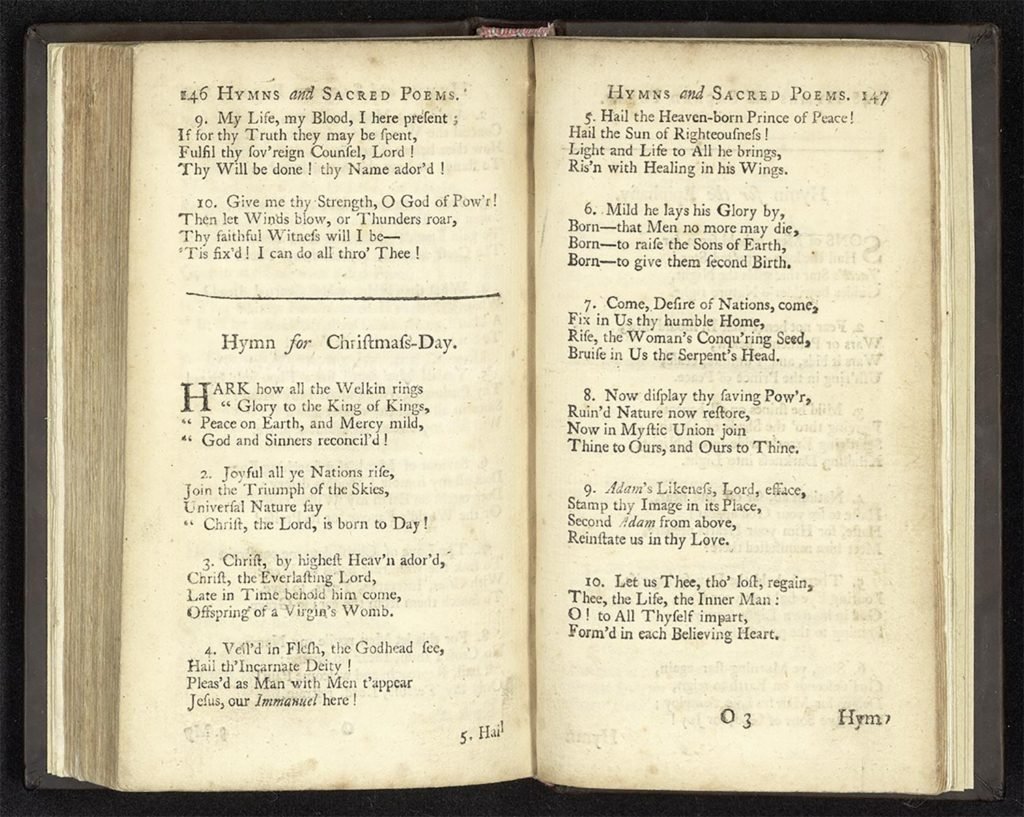 146 HYMNS and SACRED POEMS.
9. My Life, my Blood, I here preſent ;
If for thy Truth they may be ſpent,
Fulfil thy ſov'reign Counſel, Lord !
Thy Will be done ! thy Name ador'd !
10. Give me thy Strength, O God of Pow'r!
Then let Winds blow, or Thunders roar,
Thy faithful Witneſs will I be—
'Tis fix'd ! I can do all thro' Thee !
Hymn for Chriſtmaſs-Day.
HARK how all the Welkin rings
“ Glory to the King of Kings,
“ Peace on Earth, and Mercy mild,
“ God and Sinners reconcil'd !
2. Joyful all ye Nations riſe,
Join the Triumph of the Skies,
Univerſal Nature ſay
“ Chriſt, the Lord, is born to Day !
3. Chriſt, by higheſt Heav'n ador'd,
Chriſt, the Everlaſting Lord,
Late in Time behold him come,
Offspring of a Virgin's Womb.
4. Veil'd in Fleſh, the Godhead ſee,
Hail th'Incarnate Deity !
Pleas'd as Man with Men t'appear
Jeſus, our Immanuel here !
5. Hail
HYMNS and SACRED POEMS. 147
5. Hail the Heaven-born Prince of Peace!
Hail the Sun of Righteouſneſs !
Light and Life to All he brings,
Ris'n with Healing in his Wings.
6. Mild he lays his Glory by,
Born—that Men no more may die,
Born—to raiſe the Sons of Earth,
Born—to give them ſecond Birth.
7. Come, Deſire of Nations, come,
Fix in Us thy humble Home,
Riſe, the Woman's Conqu'ring Seed,
Bruiſe in Us the Serpent's Head.
8. Now diſplay thy ſaving Pow'r,
Ruin'd Nature now reſtore,
Now in Myſtic Union join
Thine to Ours, and Ours to Thine.
9. Adam's Likeneſs, Lord, efface,
Stamp thy Image in its Place,
Second Adam from above,
Reinſtate us in thy Love.
10. Let us Thee, tho' loſt, regain,
Thee, the Life, the Inner Man :
O ! to All Thyſelf impart,
Form'd in each Believing Heart.
O 3
Hymn